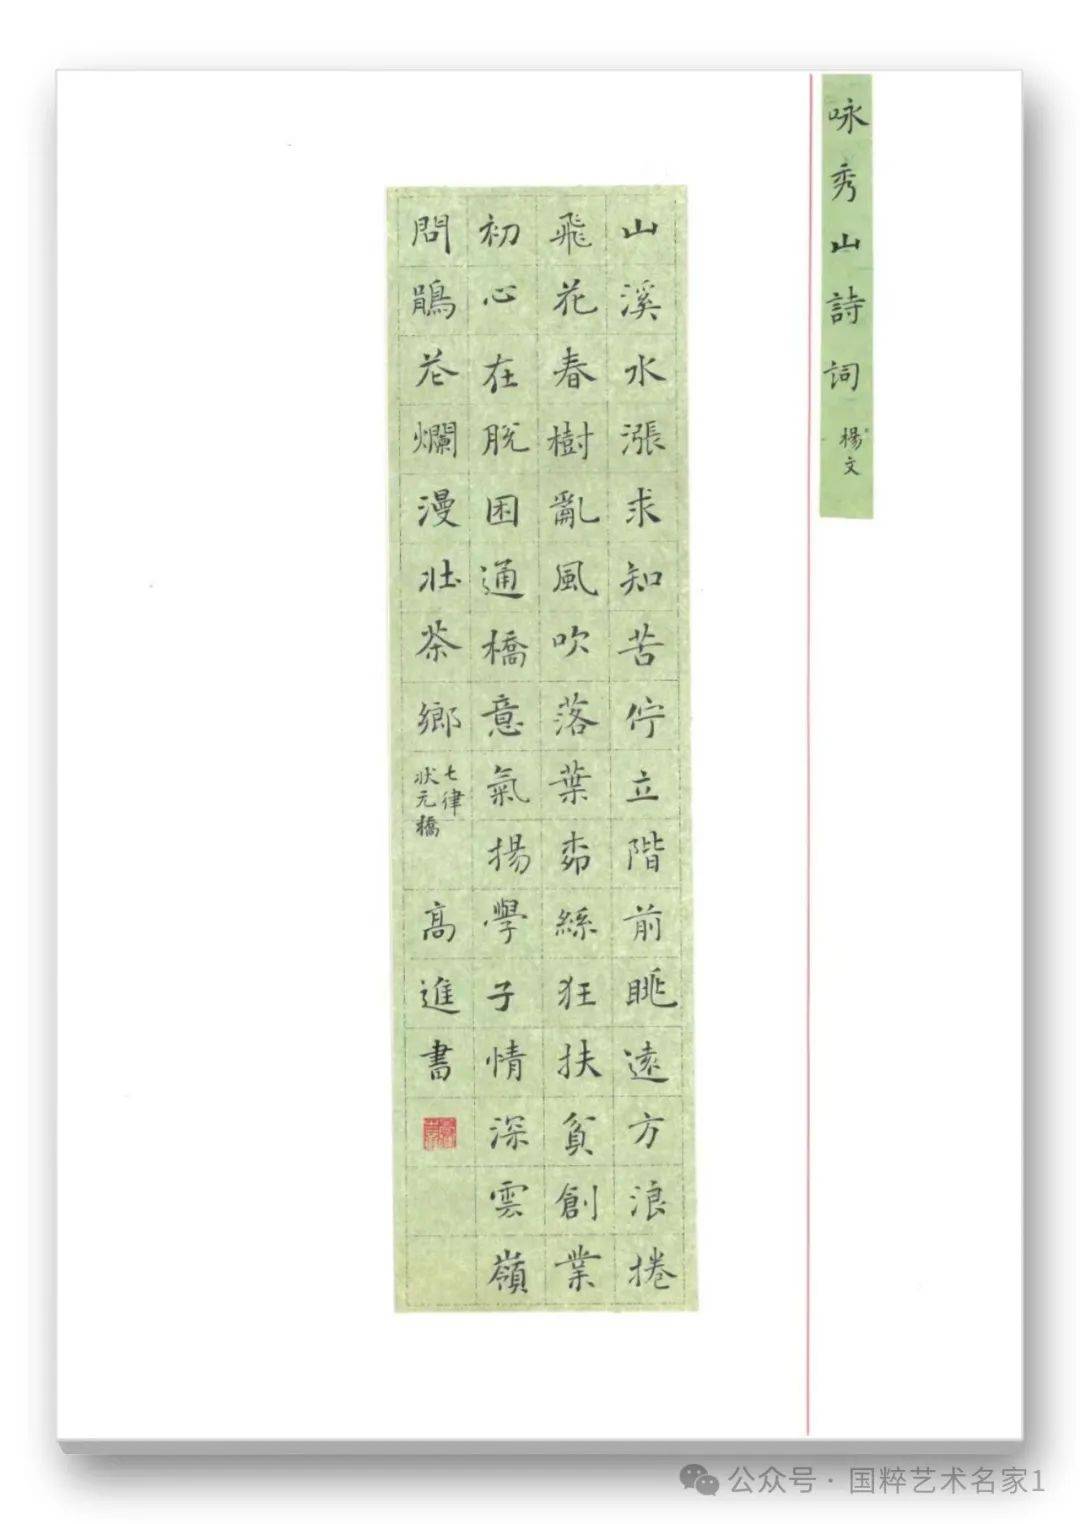 咏秀山詩詞
楊文
山溪水漲求知苦佇立階前眺遠方浪捲
飛花春樹亂風吹落葉柳絲狂扶貧創業
初心在脫困通橋意氣揚學子情深雲嶺
問鵑花爛漫壯茶鄉
七律
狀元橋
高進書
公众号 · 国粹艺术名家1